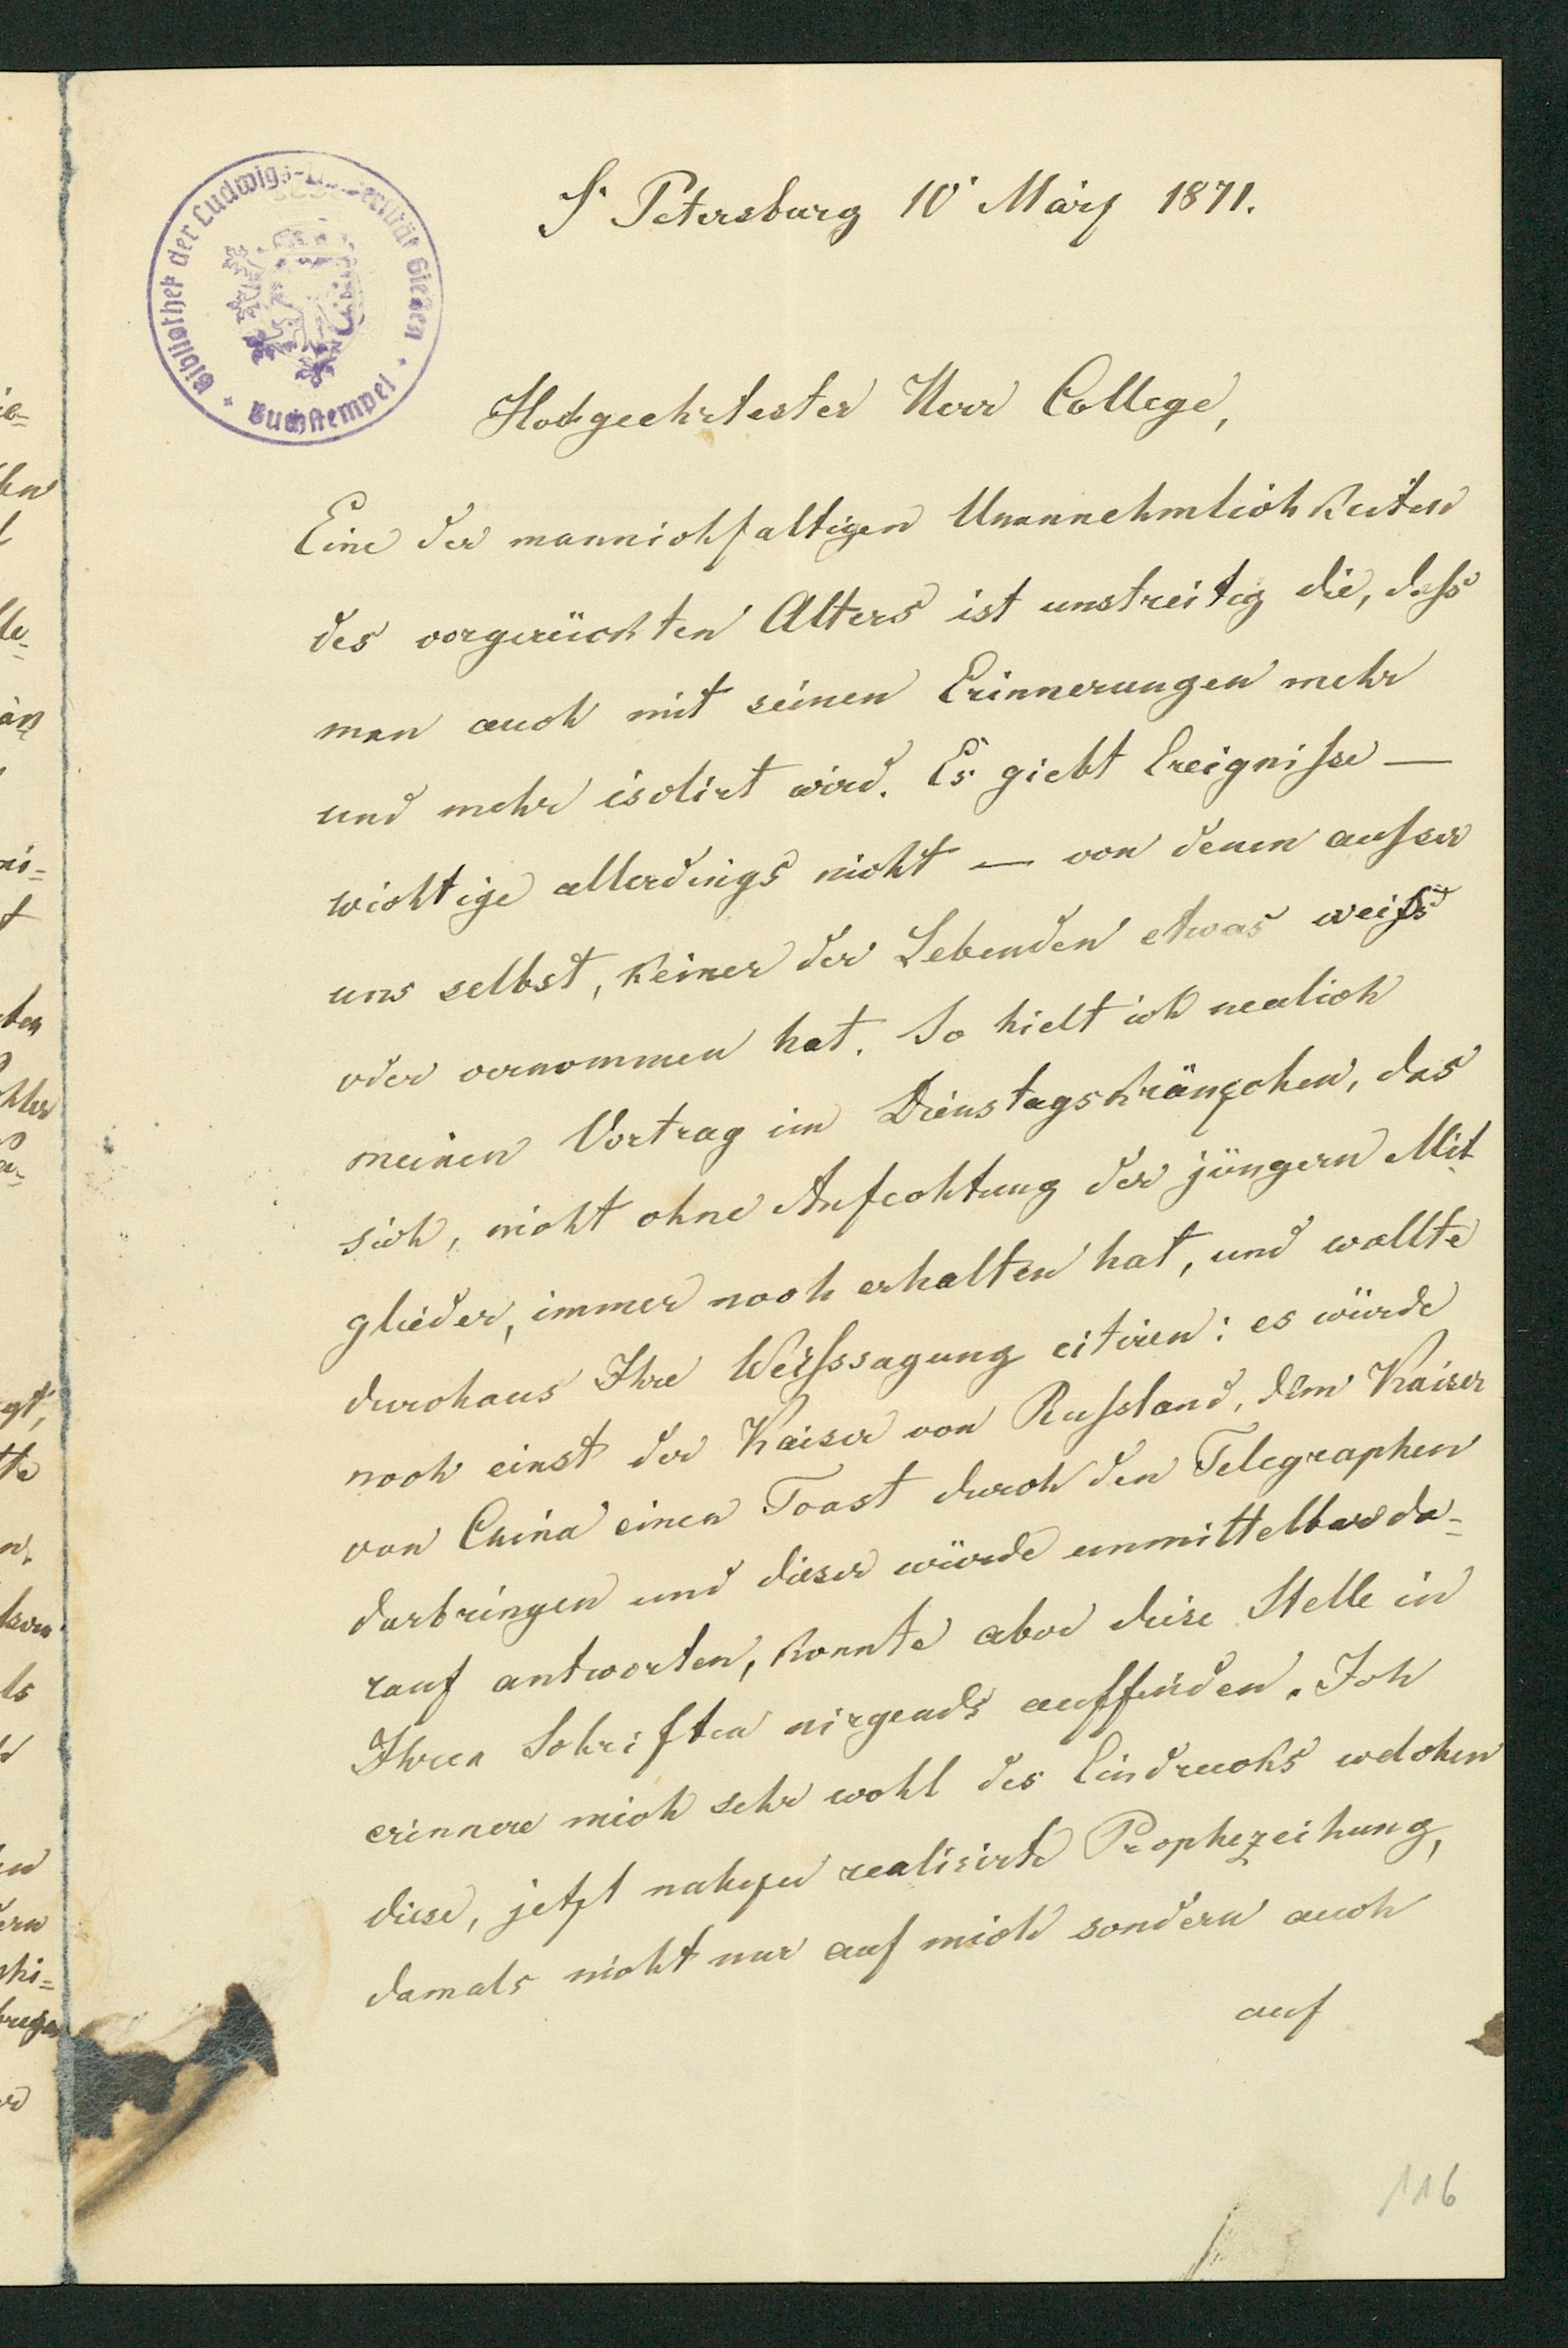 Bibliothek der Ludwigs-Universität Gießen
Buchstempel
St Petersburg 10' März 1871.
Hochgeehrtester Herr College,
Eine der mannichfaltigen Unannehmlichkeiten
des vorgerückten Alters ist unstreitig die, dass
man auch mit seinen Erinnerungen mehr
und mehr isolirt wird. Es giebt Ereignisse —
wichtige allerdings nicht — von denen ausser
uns selbst, keiner der Lebenden etwas weiss
oder vernommen hat. So hielt ich neulich
meinen Vortrag im Dienstagskränzchen, das
sich, nicht ohne Anfechtung der jüngern Mit
glieder, immer noch erhalten hat, und wollte
durchaus Ihre Weisssagung citiren: es würde
noch einst der Kaiser von Russland, dem Kaiser
von China einen Toast durch den Telegraphen
darbringen und dieser würde unmittelbar da-
rauf antworten, konnte aber diese Stelle in
Ihren Schriften nirgends auffinden. Ich
erinnere mich sehr wohl des Eindrucks welchen
diese, jetzt nahezu realisirte Prophezeihung,
damals nicht nur auf mich sondern auch
auf
116